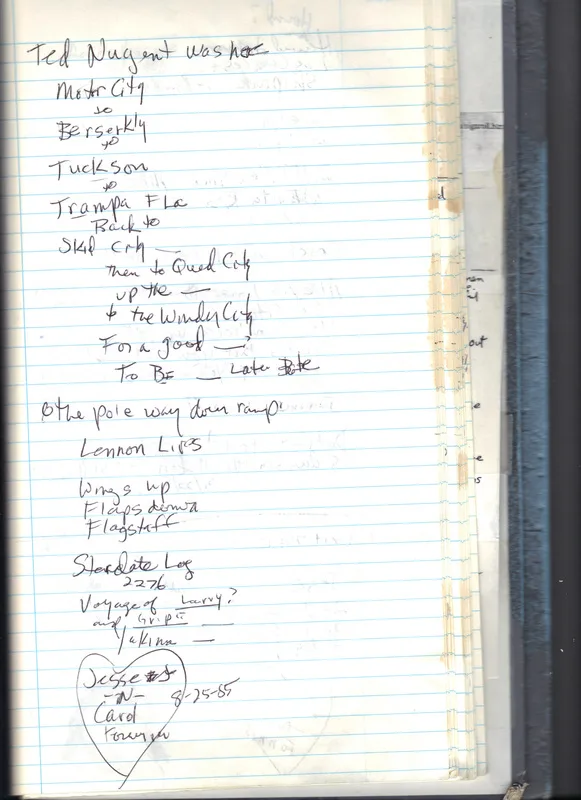 Ted Nugent was here
Motor City
to
Berserkly
to
Tuckson
to
Trampa Fla
Back to
Skid City —
then to Quad City
up the —
to the Windy City
For a good —?
To BE — Later Date
the pole way down ramp
Lennon Lips
Wings up
Flaps down
Flagstaff
Stardate Log
2276
Voyage of Larry?
and
Yakima —
Jesse
-N-
8-25-85
Card
d
out
e
e
s